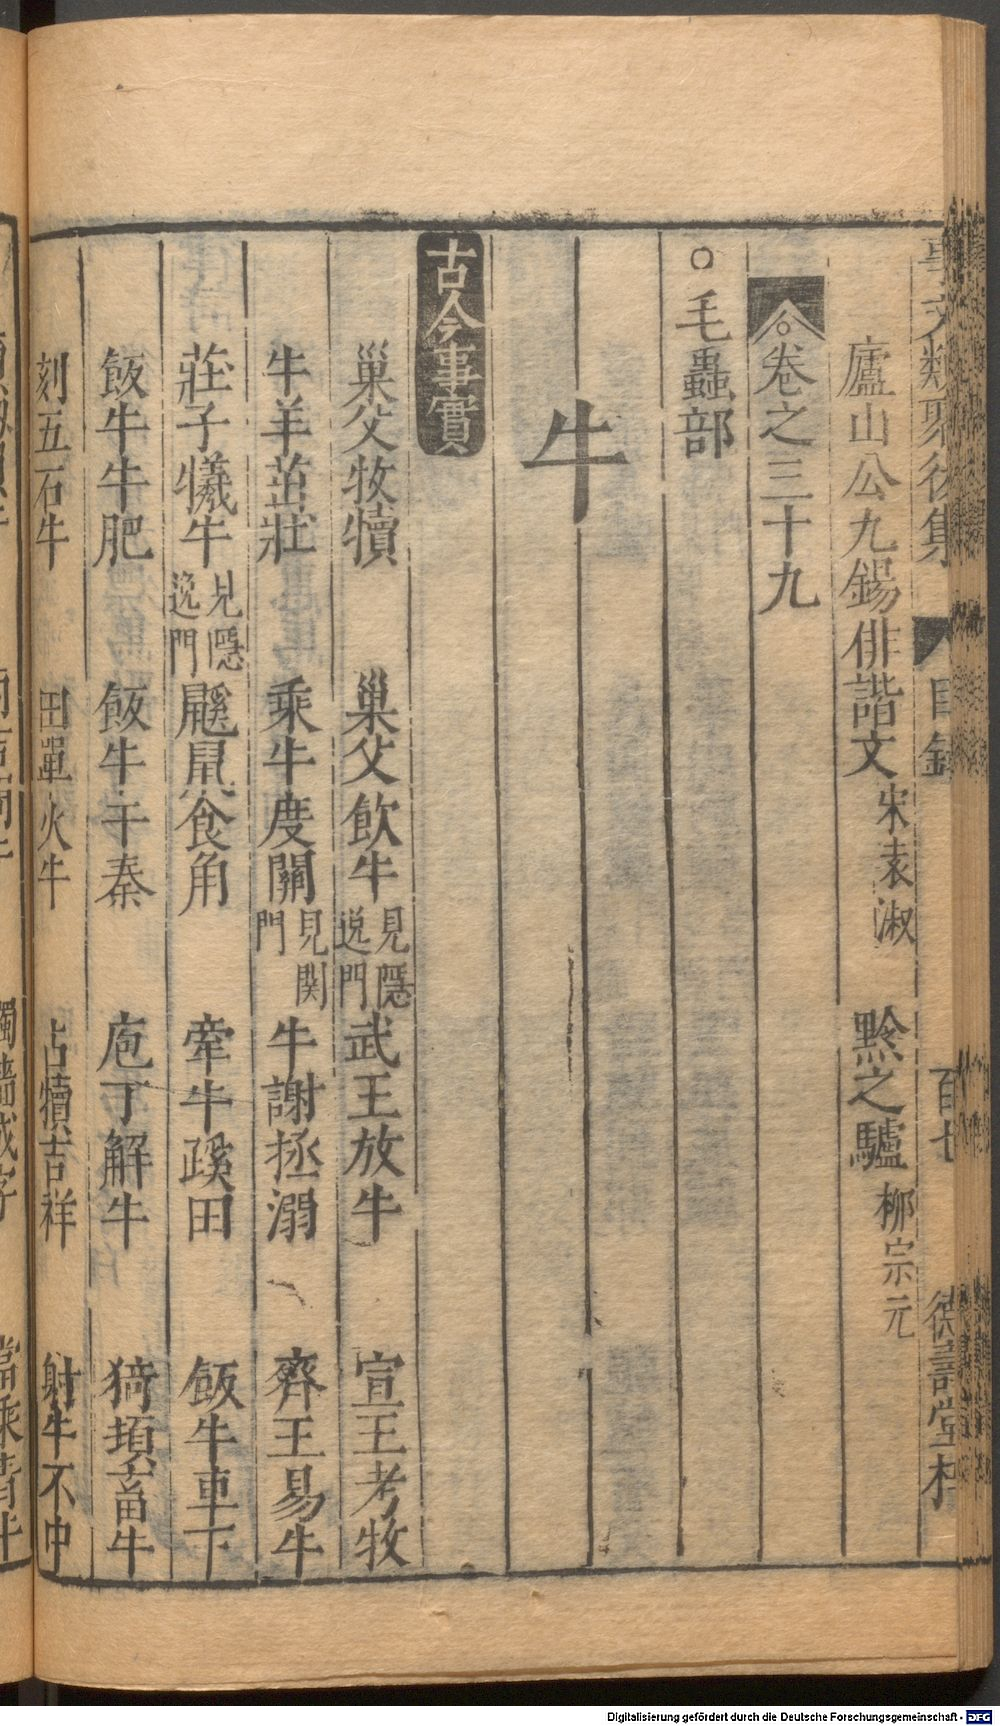 事文類聚後集 目錄 百七 德壽堂梓
廬山公九錫俳諧文 宋袁淑 黔之驢 柳宗元
卷之三十九
○毛蟲部
牛
古今事實
巢父牧犢 巢父飲牛 見隱逸門 武王放牛 宣王考牧
牛羊茁壯 乘牛度關 見関門 牛謝拯溺 齊王易牛
莊子犧牛 見隱逸門 鼷鼠食角 牽牛蹊田 飯牛車下
飯牛牛肥 飯牛干秦 庖丁解牛 猗頓畜牛
刻五石牛 田單火牛 占犢吉祥 射牛不中
Digitalisierung gefördert durch die Deutsche Forschungsgemeinschaft - DFG